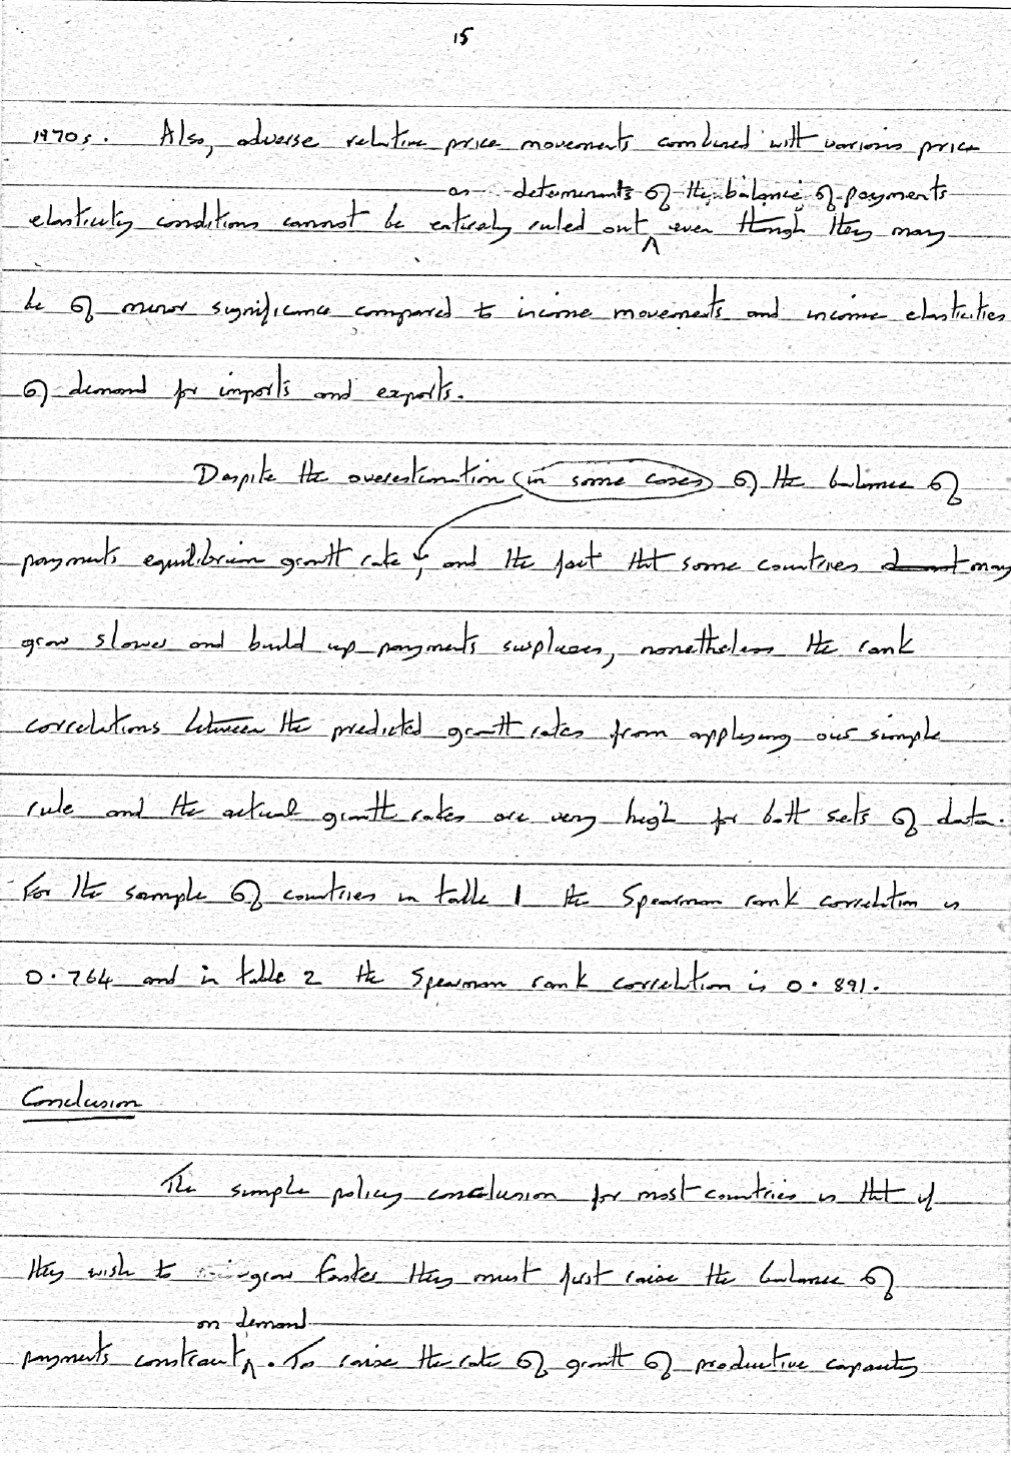 15
1970s. Also, adverse relative price movements combined with various price
as determinants of the balance of payments
elasticity conditions cannot be entirely ruled out ^ even though they may
be of minor significance compared to income movements and income elasticities
of demand for imports and exports.
Despite the overestimation (in some cases) of the balance of
payments equilibrium growth rate, and the fact that some countries may
grow slower and build up payments surpluses, nonetheless the rank
correlations between the predicted growth rates from applying our simple
rule and the actual growth rates are very high for both sets of data.
For the sample of countries in table 1 the Spearman rank correlation is
0.764 and in table 2 the Spearman rank correlation is 0.891.
Conclusion
The simple policy conclusion for most countries is that if
they wish to grow faster they must first raise the balance of
on demand
payments constraint ^. To raise the rate of growth of productive capacity